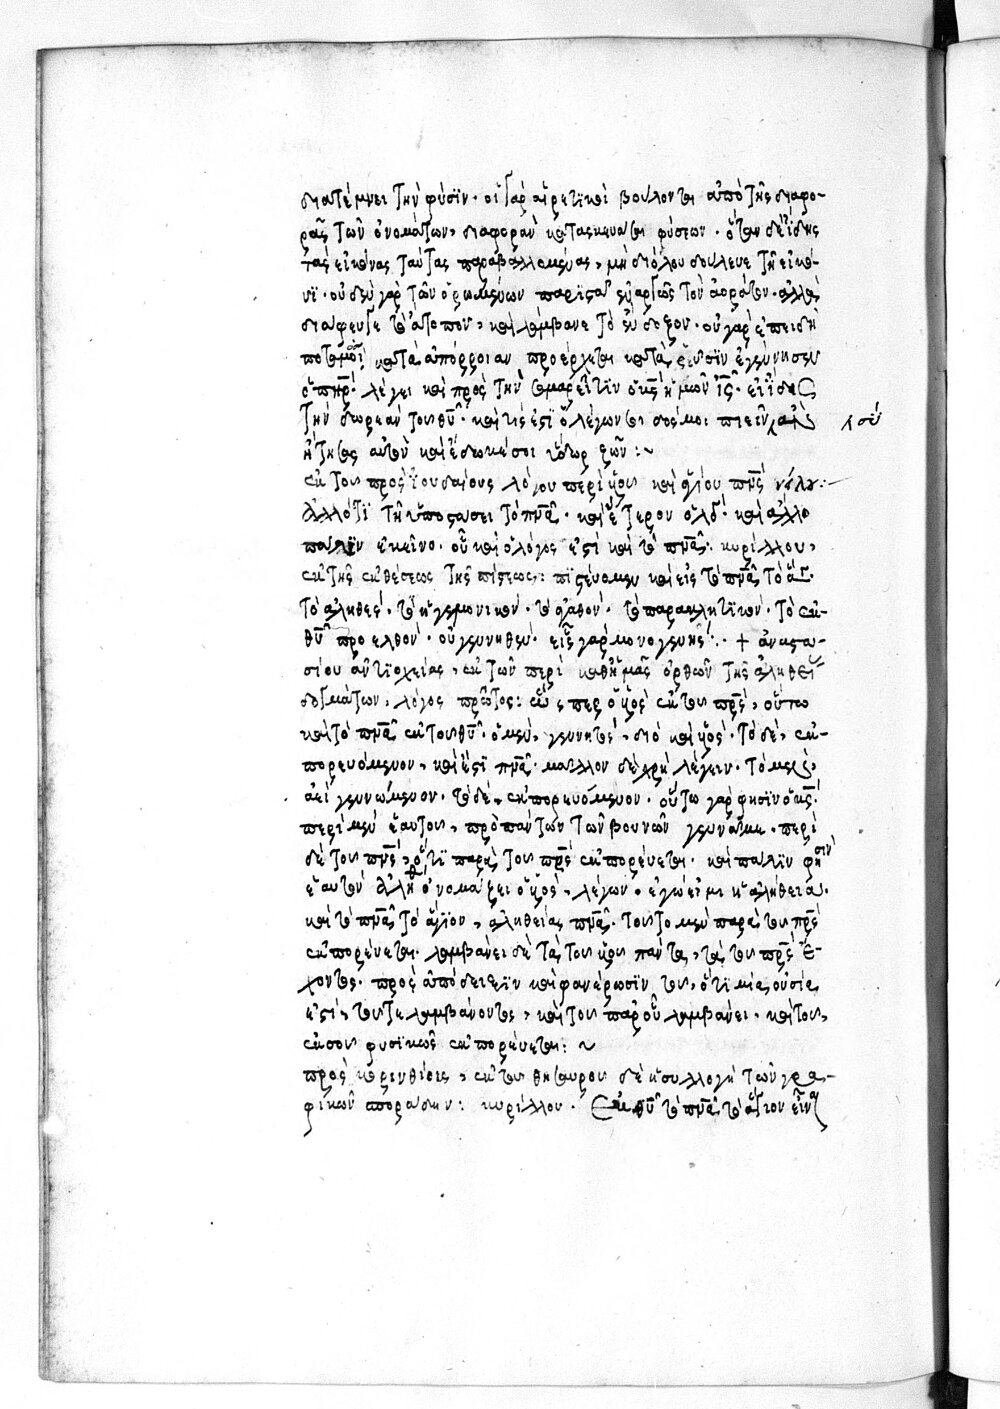 διατέμνει τὴν φύσϊν· οἱ γὰρ αἱρετϊκοὶ βούλονται ἀπὸ τῆς διαφο-
ρᾶς τῶν ὀνομάτων, διαφορὰν κατασκευάσαι φύσεων· ὅταν δὲ ἴδης
τὰς εἰκόνας ταύτας παραβαλλομένας, μὴ διόλου δούλευε τῆ εἰκό-
νϊ· οὐδὲν γὰρ τῶν ὁρωμένων παρϊστᾶ ἐναργῶς τὸν ἀόρατον· ἀλλὰ
διάφευγε τὸ ἄτοπον, καὶ λάμβανε τὸ ἔνδοξον· οὐ γὰρ ἐπειδὴ
ποταμὸς κατὰ ἀπόρροιαν προέρχεται κατὰ ῥεῦσϊν ἐγέννησεν
ὁ πηρ· λέγει καὶ πρὸς τὴν σαμαρείτϊν ὁ κς ἡμῶν ις· εἰ ἤδεις
τὴν δωρεὰν τοῦ θυ· καὶ τίς ἐστὶ ὁ λέγων σοι δός μοι πιεῖν
ἤτησας αὐτὸν καὶ ἔδωκέ σοι ὕδωρ ζῶν:~
ἐκ τοῦ πρὸς ἰουδαίους λόγου περὶ υἱοῦ καὶ ἁγίου πνς
ἄλλό τϊ τῆ ὑποστάσει τὸ πνα· καὶ ἕτερον ὁ λόγος· καὶ ἄλλο
πάλϊν ἐκεῖνο· οὗ καὶ ὁ λόγος ἐστὶ καὶ τὸ πνα: κυρίλλου,
ἐκ τῆς ἐκθέσεως τῆς πίστεως: πϊστεύομεν καὶ εἰς τὸ πνα τὸ ἅγ·
τὸ ἀληθές· τὸ ἡγεμονικόν· τὸ ἀγαθόν· τὸ παράκλητϊκόν· τὸ ἐκ
θυ προελθόν· οὐ γεννηθέν· εἷς γὰρ μονογενής:· + ἀναστα-
σίου ἀντϊοχείας, ἐκ τῶν περὶ καθ᾽ ἡμᾶς ὀρθῶν τῆς ἀληθείας
δογμάτων, λόγος πρῶτος: ὥσπερ ὁ υἱὸς ἐκ τοῦ πρς, οὕτω
καὶ τὸ πνα ἐκ τοῦ θυ· ὁ μὲν, γεννητός, διὸ καὶ υἱός· τὸ δὲ, ἐκ-
πορευόμενον, καὶ ἔστϊ πνα· μᾶλλον δὲ χρὴ λέγειν· τὸ μὲν,
ἀεὶ γεννώμενον· τὸ δὲ, ἐκπορευόμενον· οὕτω γάρ φησϊν ὁ κς·
περὶ μὲν ἑαυτοῦ, πρὸ πάντων τῶν βουνῶν γεννᾶ με· περὶ
δὲ τοῦ πνς, ὅτϊ παρὰ τοῦ πρς ἐκπορεύεται· καὶ πάλϊν φησϊν
ἑαυτὸν ἀλήθ ὀνομάζει ὁ υἱὸς, λέγων· ἐγώ εἰμι ἡ ἀλήθεια·
καὶ τὸ πνα τὸ ἅγϊον, ἀληθείας πνα· τοῦτο μὲν παρὰ τοῦ πρς
ἐκπορεύεται· λαμβάνει δὲ τὰ τοῦ υἱοῦ πάντα, τὰ τοῦ πρς ἔ-
χοντος· πρὸς ἀπόδειξϊν καὶ φανέρωσϊν τοῦ, ὅτϊ μία οὐσία
ἐστί, τοῦ τε λαμβάνοντος, καὶ τοῦ παρ᾽ οὗ λαμβάνει· καὶ τοῦ,
ἐξ οὗ φυσϊκῶς ἐκπορεύεται:~
πρὸς κορινθίοις, ἐκ τοῦ θησαυροῦ δὲ ἡ συλλογὴ τῶν γρα-
φικῶν ἁπασῶν: κυρίλλου· Ἐκ θυ τὸ πνα τὸ ἅγιον εἶναι